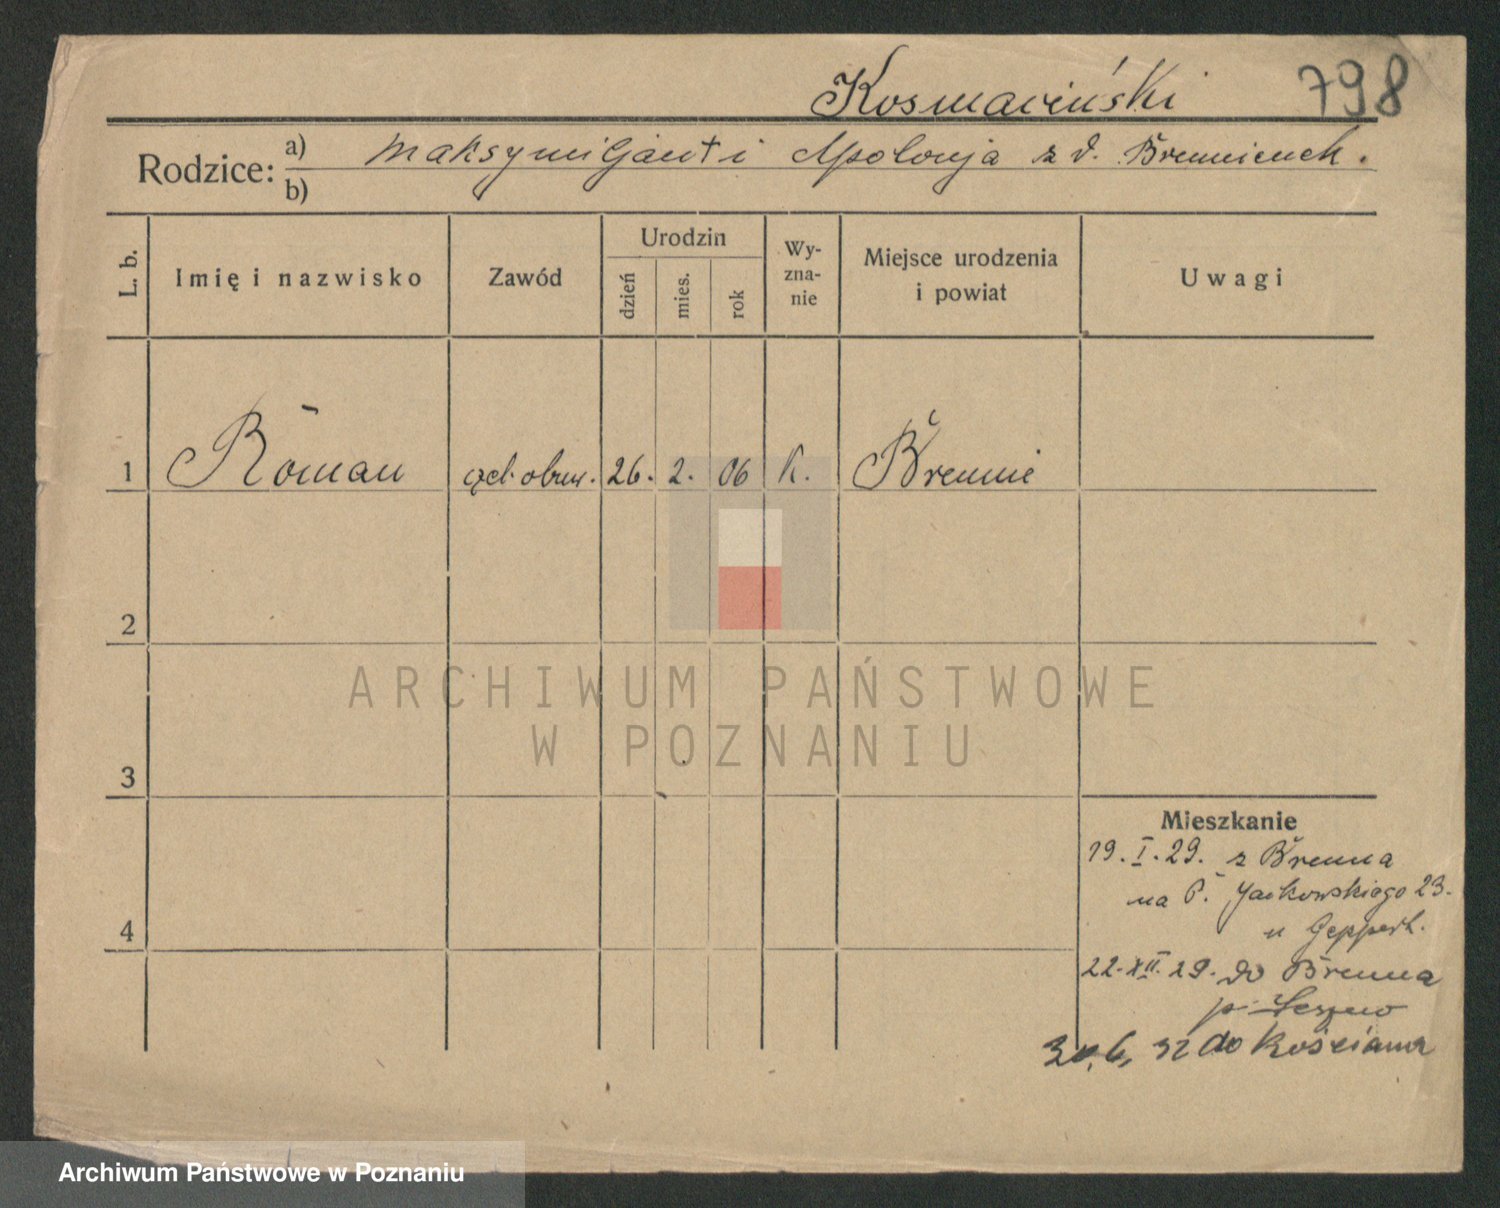 Kosmaciński 798
Rodzice: a) Maksymiljan † i Apolonja z d.
b)
L. b.
Imię i nazwisko
Zawód
Urodzin
dzień
mies.
rok
Wy-
zna-
nie
Miejsce urodzenia
i powiat
Uwagi
1 Roman czel. obuw. 26. 2. 06 K. Brennie
2
3
4
Mieszkanie
19. I. 29. z Brenna
na P. Jackowskiego 23.
u Geppert.
22. XII. 29. do Brenna
p. Leszno
30.6. 32 do Kościana
ARCHIWUM PAŃSTWOWE
W POZNANIU
Archiwum Państwowe w Poznaniu